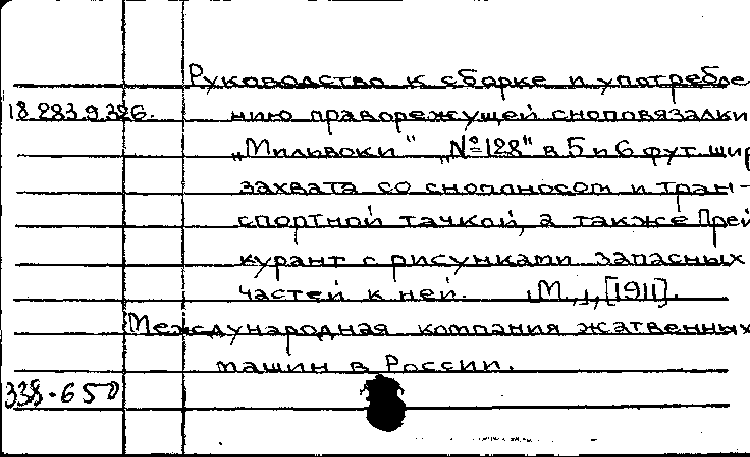 Руководство к сборке и употребле
18.283.9.326. нию праворежущей сноповязалки
„Мильвоки" „№128" в 5 и 6 фут. шир
захвата со снопоносом и тран-
спортной тачкой, а также Прей
курант с рисунками запасных
частей к ней. М., [1911].
Международная компания жатвенных
машин в России.
338.650